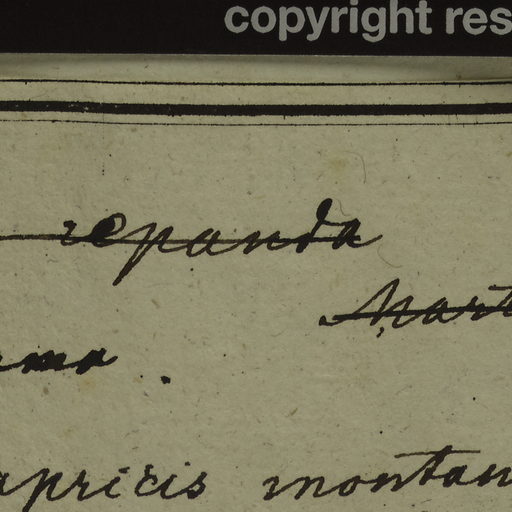 copyright res
repanda
Mart
ma .
apricis montan